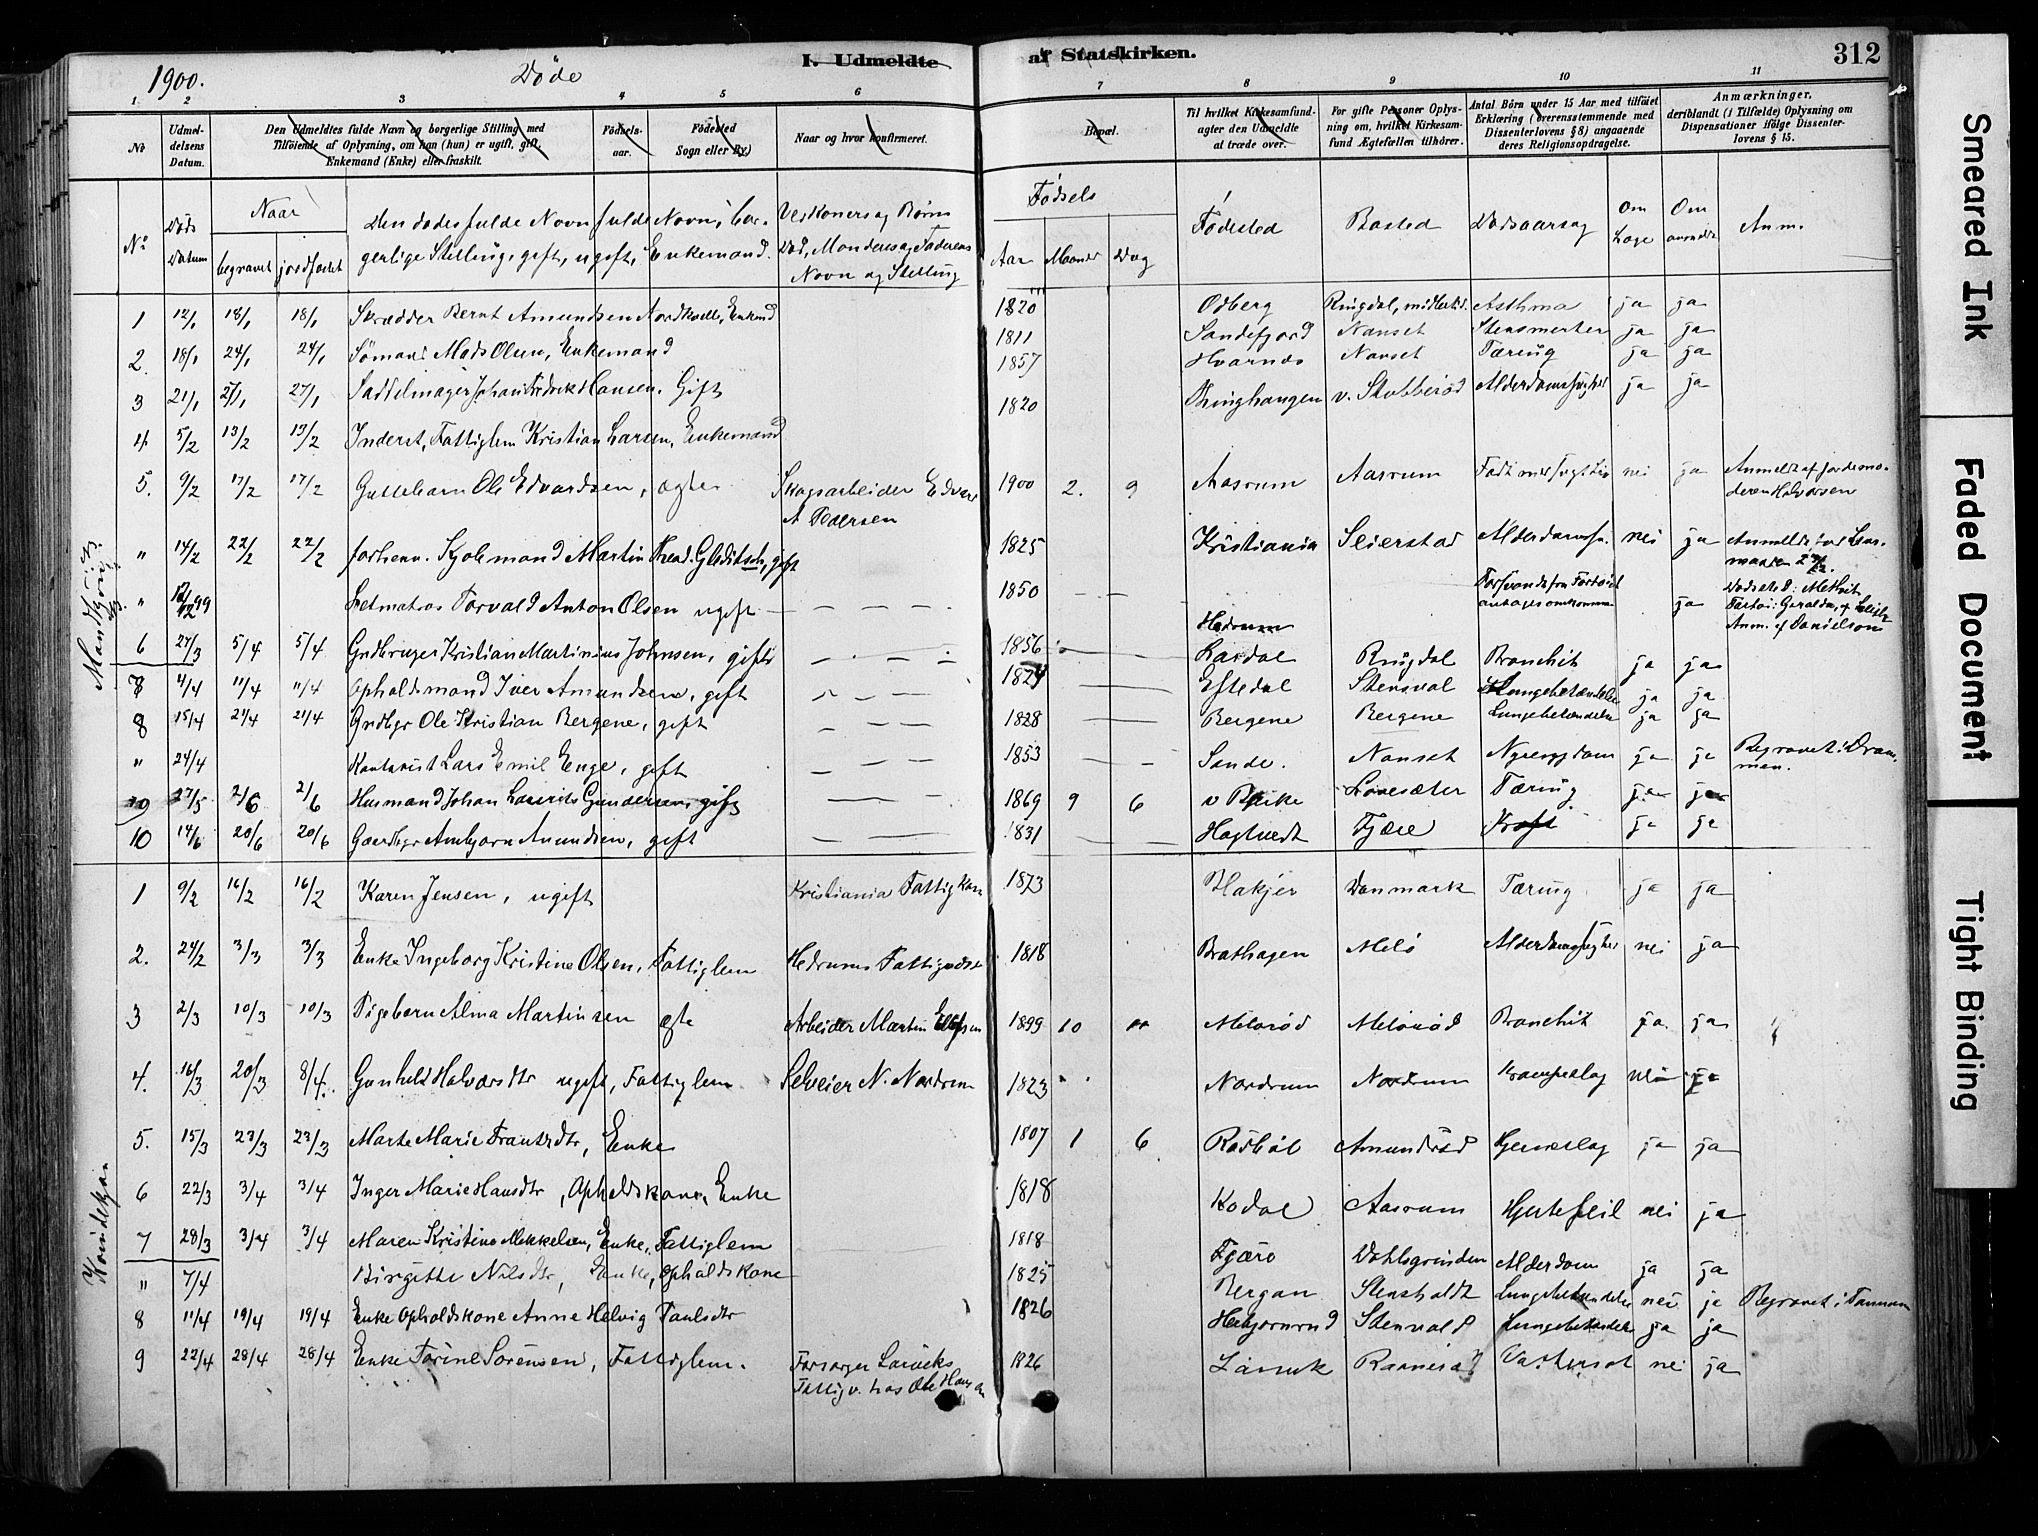 1900. Døde I. Udmeldte af Statskirken. 312
1 2 3 4 5 6 7 8 9 10 11
No Udmel-delsens Datum. Den Udmeldtes fulde Navn og borgerlige Stilling med Tilføiende af Oplysning, om han (hun) er ugift, gift, Enkemand (Enke) eller fraskilt. Fødsels-aar. Fødested Sogn eller By) Naar og hvor konfirmeret. Bopæl. Til hvilket Kirkesamfund-agter den Udmeldte at træde over. For gifte Personer Oplys-ning om, hvilket Kirkesam-fund Ægtefællen tilhører. Antal Børn under 15 Aar med tilføiet Erklæring (overensstemmende med Dissenterlovens § 8) angaaende deres Religionsopdragelse. Anmærkninger, deriblandt (i Tilfælde) Oplysning om Dispensationer ifølge Dissenter-lovens § 15.
No Døds Datum Naar begravet jordfæstet Den dødes fulde Navn fulde Navn, bor-gerlige Stilling, gift, ugift, Enkemand. Ved Koner og Børn Novn og Stilling Fødsels Aar Maaned Dag Fødested Bosted Dødsaarsag Om Læge Om anmeldt Anm.
Mandkjøn
1 12/1 18/1 18/1 Skrædder Bernt Amundsen 1820 Odberg Ringdal, Asthma ja ja
2 18/1 24/1 24/1 Sømand Mads Olsen, Enkemand 1811 Sandefjord Nanset ja ja
3 21/1 27/1 27/1 Sadelmager Johan Fredrik Hansen. Gift 1857 Hvarnes Nanset Tæring ja ja
4 5/2 13/2 13/2 Inderst, Fattiglem Kristian Larsen, Enkemand 1820 ja ja
5. 9/2 17/2 17/2 Guttebarn Ole Edvardsen, ægte Skogsarbeider Edvard A Pedersen 1900 2. 9 Aasrum Aasrum nei ja Anmeldt af jordemo-deren Halvorsen
" 14/2 22/2 22/2 forhenv. Martin Gleditsch, gift 1825 Kristiania Seierstad nei ja
" 12/12 99 Letmatros Torvald Anton Olsen ugift 1850 Hedrum ja
6 27/3 5/4 5/4 Gndbruger Kristian Martinius Johnsen, gift 1856 Lardal Ringdal Bronchit ja ja
7 4/4 11/4 11/4 Opholdsmand Iver Amundsen, gift 1824 Eftedal Stensval Lungebetændelse ja ja
8 15/4 21/4 21/4 Gndbgr Ole Kristian Bergene, gift 1828 Bergene Bergene Lungebetændelse ja ja
" 24/4 Kontorist Lars Emil Enge, gift 1853 Sande. Nanset Nyresygdom ja ja Begravet i Dram-men.
9 27/5 2/6 2/6 Husmand Johan Laurits Gundersen, gift 1869 9 6 Tæring ja ja
10 14/6 20/6 20/6 Gaardbgr Anbjørn Amundsen, gift 1831 Hagtvedt Fjære Kræft ja ja
Kvindekjøn
1 9/2 16/2 16/2 Karen Jensen, ugift Kristiania Fattigkom 1873 Danmark Tæring ja ja
2. 24/2 3/3 3/3 Enke Ingeborg Kristine Olsen, Fattiglem Hedrums Fattigvæsen 1818 Brathagen Melø nei ja
3 2/3 10/3 10/3 Pigebarn Alma Martinsen ægte Arbeider Martin 1899 10 Melørød Melørød Bronchit ja ja
4. 16/3 20/3 8/4. Gunhild Halvorsdtr ugift, Fattiglem Selveier N. Nordrum 1823 Nordrum Nordrum nei ja
5. 15/3 23/3 23/3 Marte Marie Frantzdtr, Enke 1807 1 6 Amundrød ja ja
6 22/3 3/4 3/4 Inger Marie Hansdtr, Opholdskone, Enke 1818 Kodal Aasrum Hjertefeil nei ja
7 28/3 3/4 3/4 Maren Kristine Mikkelsen, Enke, Fattiglem 1818 Fjære Alderdom ja ja
" 7/4 Birgitte Nilsdtr, Enke, Opholdskone 1825 Bergan Stensholdt Lungebetændelse nei ja Begravet i Tanum
8 11/4 19/4 19/4 Enke Opholdskone Anne Helvig Paulsdtr 1826 Stenvald Lungebetændelse ja ja
9 22/4 28/4 28/4 Enke Torine Sørensen, Fattiglem. Forsørger Larviks Fattigv. hos Ole Hansen 1826 Larvik Vattersot nei ja
Smeared Ink
Faded Document
Tight Binding